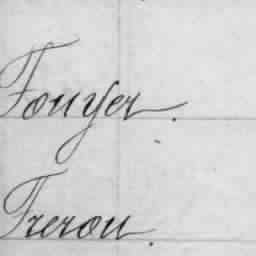 Fouyer.
Freron.